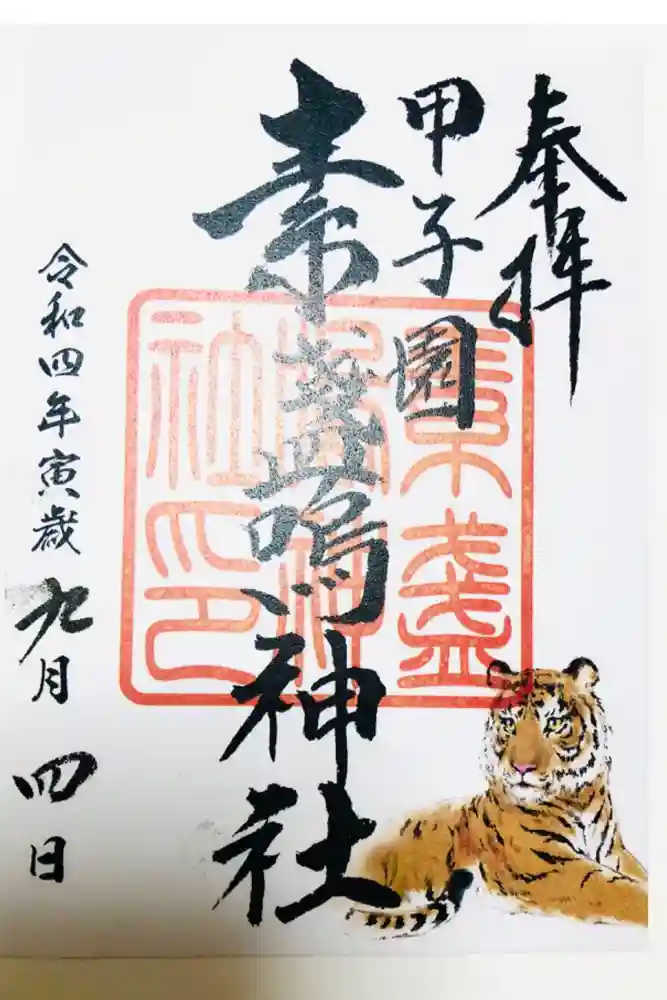 奉拝
甲子園
素盞嗚神社
素盞嗚神社印
令和四年寅歳九月四日